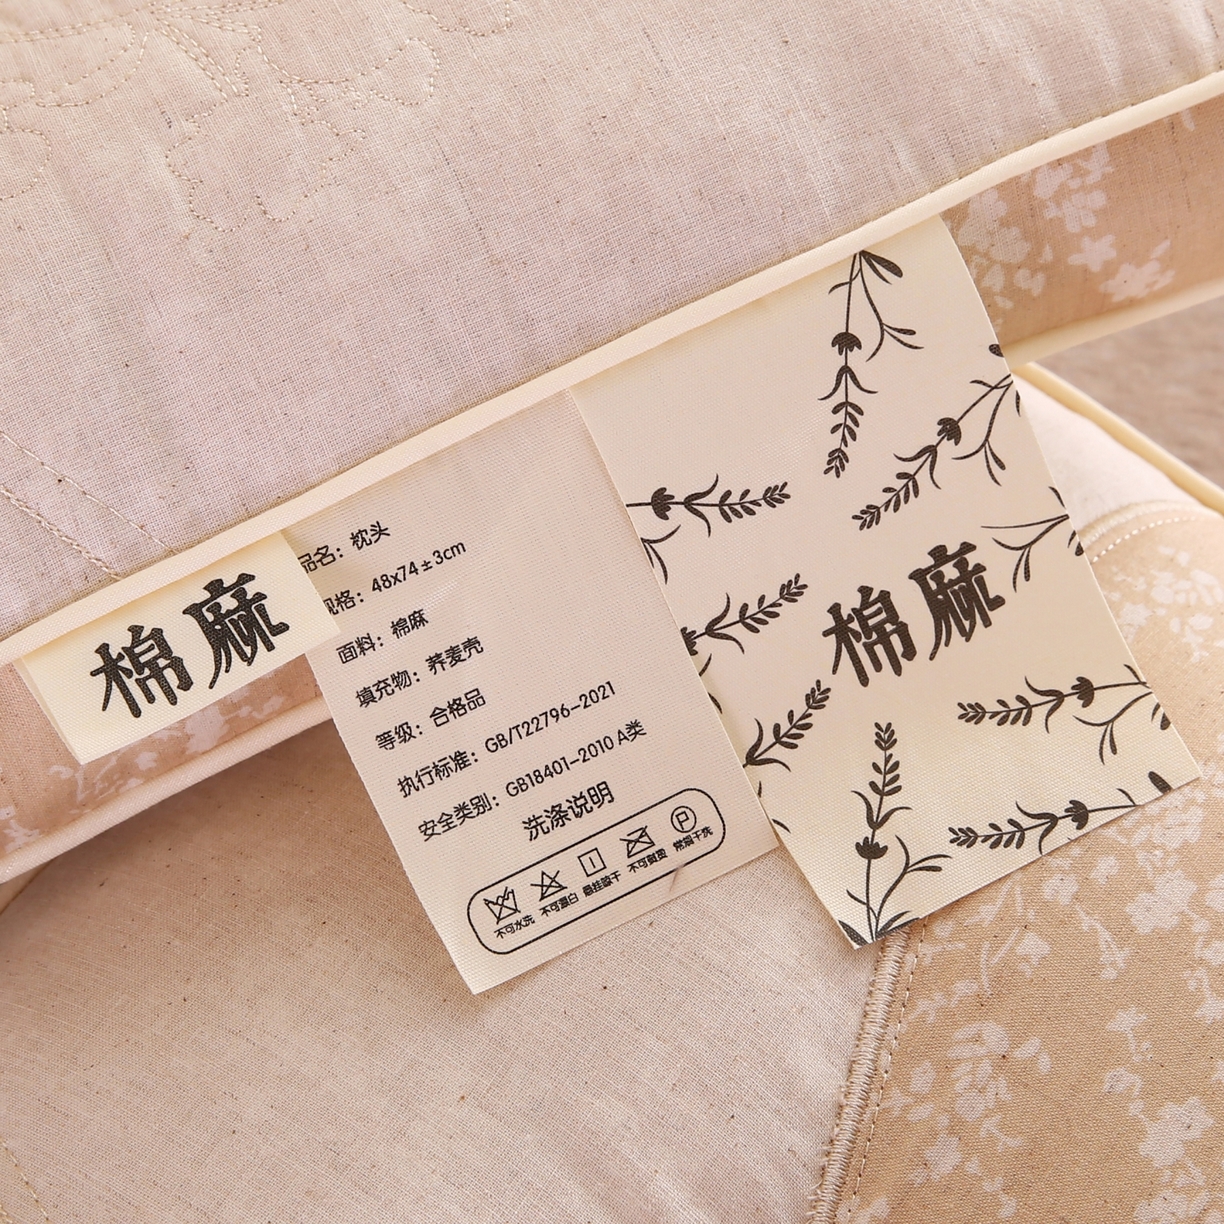 棉麻
品名：枕头
规格：48x74±3cm
面料：棉麻
填充物：荞麦壳
等级：合格品
执行标准：GB/T22796-2021
安全类别：GB18401-2010 A类
洗涤说明
不可水洗 不可漂白 悬挂晾干 不可熨烫 常规干洗
棉麻